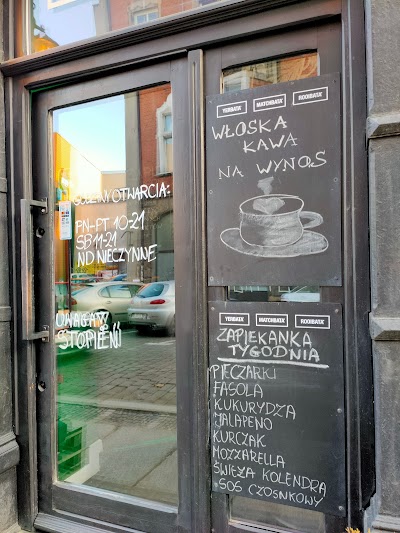 GODZINY OTWARCIA:
PN-PT 10-21
SB 11-21
ND NIECZYNNE
UWAGA
STOPIEŃ!
YERBATA' MATCHBATA' ROOIBATA'
WŁOSKA
KAWA
NA WYNOS
YERBATA' MATCHBATA' ROOIBATA'
ZAPIEKANKA
TYGODNIA
PIECZARKI
FASOLA
KUKURYDZA
JALAPENO
KURCZAK
MOZZARELLA
ŚWIEŻA KOLENDRA
SOS CZOSNKOWY